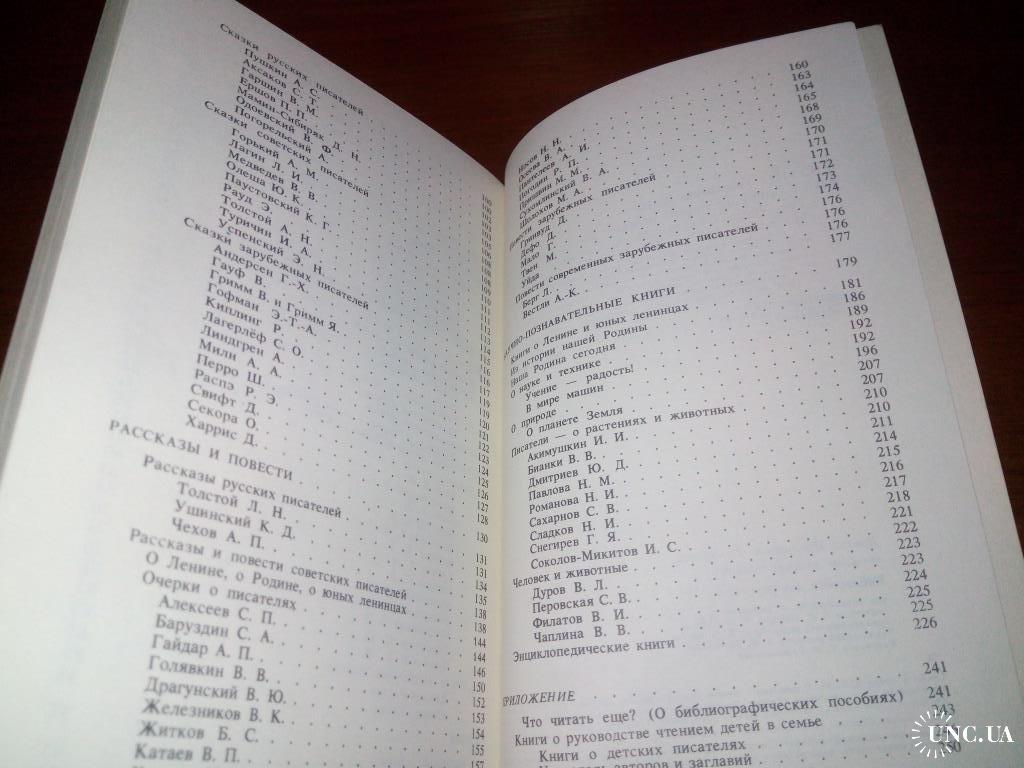 Сказки русских писателей
Пушкин А. С.
Аксаков С. Т.
Гаршин В. М.
Ершов П. П.
Мамин-Сибиряк Д. Н.
Одоевский В. Ф.
Погорельский А.
Сказки советских писателей
Горький А. М.
Лагин Л. И.
Медведев В. В.
Олеша Ю. К.
Паустовский К. Г.
Рауд Э.
Толстой А. Н.
Туричин И. А.
Успенский Э. Н.
Сказки зарубежных писателей
Андерсен Г.-Х.
Гауф В.
Гримм В. и Гримм Я.
Гофман Э.-Т.-А.
Киплинг Р.
Лагерлёф С. О.
Линдгрен А.
Милн А. А.
Перро Ш.
Распэ Р. Э.
Свифт Д.
Секора О.
Харрис Д.
РАССКАЗЫ И ПОВЕСТИ
Рассказы русских писателей
Толстой Л. Н.
Ушинский К. Д.
Чехов А. П.
Рассказы и повести советских писателей
О Ленине, о Родине, о юных ленинцах
Очерки о писателях
Алексеев С. П.
Баруздин С. А.
Гайдар А. П.
Голявкин В. В.
Драгунский В. Ю.
Железников В. К.
Житков Б. С.
Катаев В. П.
119
120
121
122
123
124
125
126
127
128
130
131
131
134
135
138
138
144
144
146
150
152
153
154
155
157
Носов Н. Н.
Осеева В. А.
Пантелеев А. И.
Погодин Р. П.
Пришвин М. М.
Сухомлинский В. А.
Шолохов М. А.
Повести зарубежных писателей
Гринвуд Д.
Дефо Д.
Мало Г.
Твен М.
Уйда
Повести современных зарубежных писателей
Берг Л.
Вестли А.-К.
НАУЧНО-ПОЗНАВАТЕЛЬНЫЕ КНИГИ
Книги о Ленине и юных ленинцах
Из истории нашей Родины
Наша Родина сегодня
О науке и технике
Учение — радость!
В мире машин
О природе
О планете Земля
Писатели — о растениях и животных
Акимушкин И. И.
Бианки В. В.
Дмитриев Ю. Д.
Павлова Н. М.
Романова Н. И.
Сахарнов С. В.
Сладков Н. И.
Снегирев Г. Я.
Соколов-Микитов И. С.
Человек и животные
Дуров В. Л.
Перовская С. В.
Филатов В. И.
Чаплина В. В.
Энциклопедические книги
ПРИЛОЖЕНИЕ
Что читать еще? (О библиографических пособиях)
Книги о руководстве чтением детей в семье
Книги о детских писателях
авторов и заглавий
160
163
164
165
168
169
170
171
171
172
173
174
176
176
177
179
181
186
189
192
192
196
207
207
210
210
211
214
215
216
217
218
221
222
223
223
224
225
225
226
241
241
243
UNC.UA